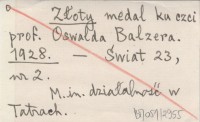 Złoty medal ku czci
prof. Oswalda Balzera.
1928. — Świat 23,
nr 2.
M.in. działalność w
Tatrach.